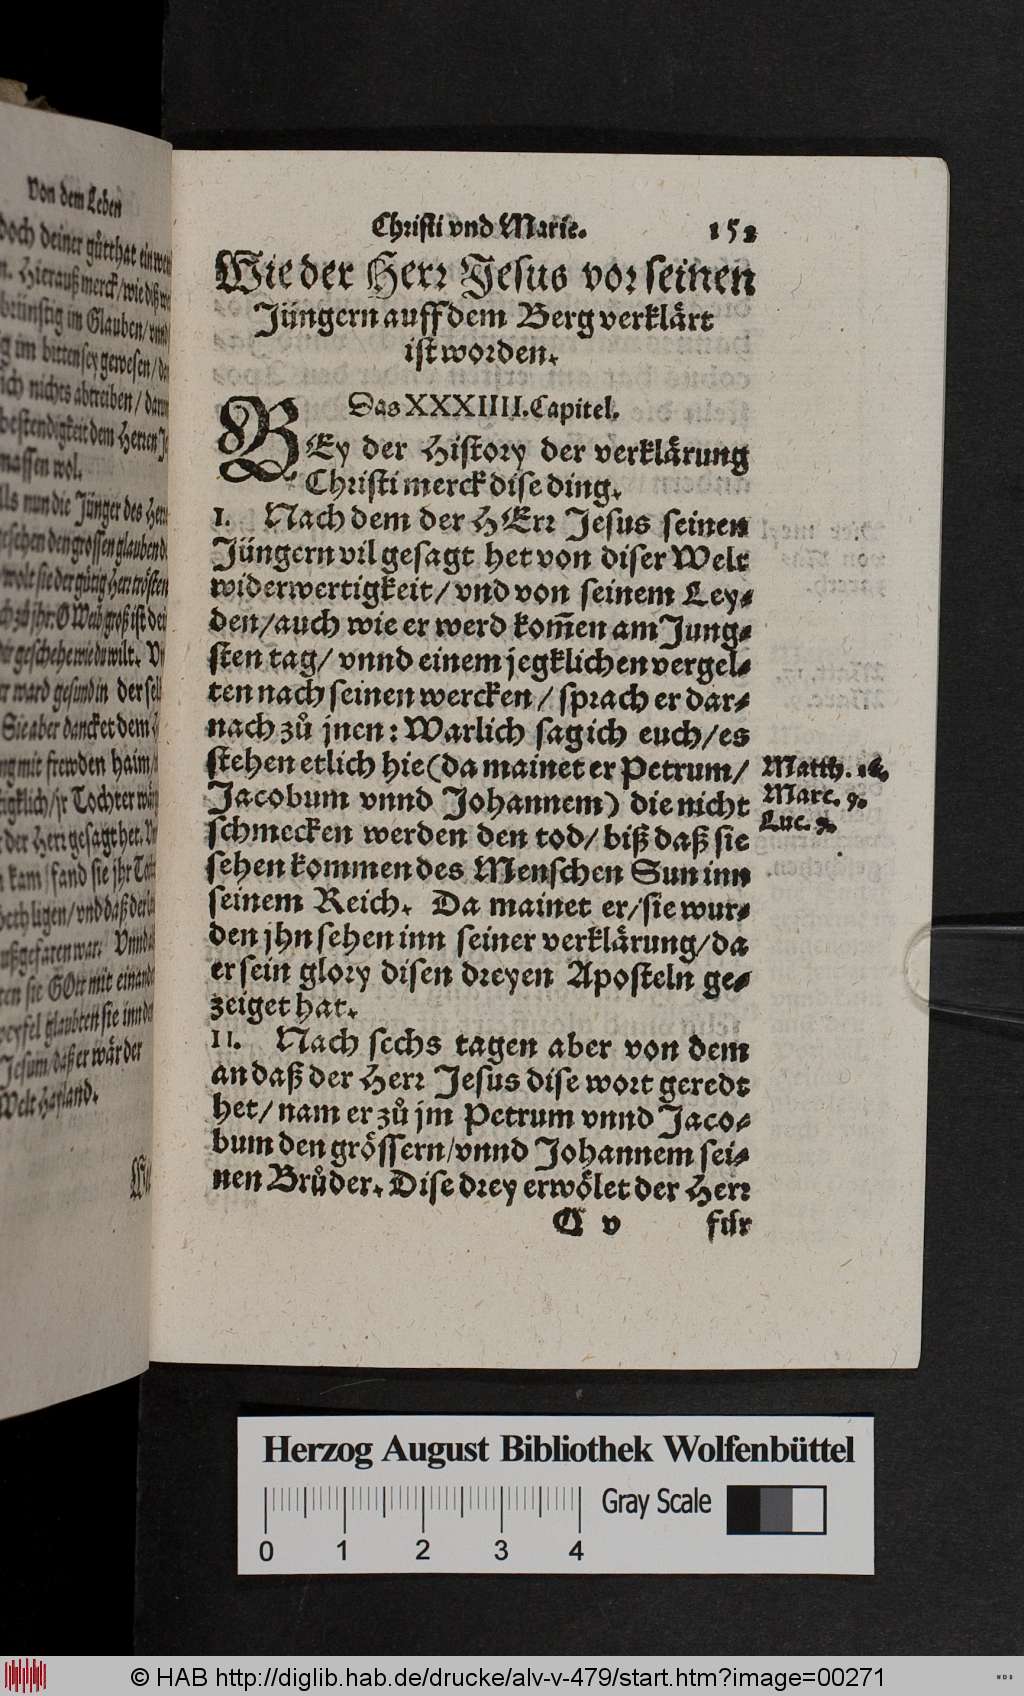 Von dem Leben
doch deiner gůtthat ein
Hierauß merck/wie diß
brünstig im Glauben/
im bitten sey gewesen/
nichts abtreiben/
bestendigkeit dem Herren
massen wol.
nun die Jünger des
den grossen glauben
wolt sie der gütig Herr trösten
jhr: O Weib groß ist
geschehe wie du wilt.
ward gesund in der
Sie aber dancket dem
mit frewden haim/
jr Tochter
der Herr gesagt het.
kam/fand sie jhr
ligen/vnd daß der
außgefaren war. Vnnd
sie GOtt mit
glaubten sie inn
Jesum/daß er wär der
Welt Hayland.
Christi vnd Marie. 152
Wie der Herr Jesus vor seinen
Jüngern auff dem Berg verklärt
ist worden.
Das XXXIIII. Capitel.
BEy der History der verklärung
Christi merck dise ding.
I. Nach dem der HErr Jesus seinen
Jüngern vil gesagt het von diser Welt
widerwertigkeit/ vnd von seinem Ley-
den/auch wie er werd kom̃en am Jung-
sten tag/ vnnd einem jegklichen vergel-
ten nach seinen wercken / sprach er dar-
nach zů jnen: Warlich sag ich euch/es
stehen etlich hie (da mainet er Petrum/
Jacobum vnnd Johannem) die nicht
schmecken werden den tod/ biß daß sie
sehen kommen des Menschen Sun inn
seinem Reich. Da mainet er/sie wur-
den jhn sehen inn seiner verklärung/da
er sein glory disen dreyen Aposteln ge-
zeiget hat.
II. Nach sechs tagen aber von dem
an daß der Herr Jesus dise wort geredt
het/ nam er zů jm Petrum vnnd Jaco-
bum den grössern/vnnd Johannem sei-
nen Brůder. Dise drey erwölet der Herr
C v für
Matth. 16.
Marc. 9.
Luc. 9.
Herzog August Bibliothek Wolfenbüttel
Gray Scale
0 1 2 3 4
© HAB http://diglib.hab.de/drucke/alv-v-479/start.htm?image=00271